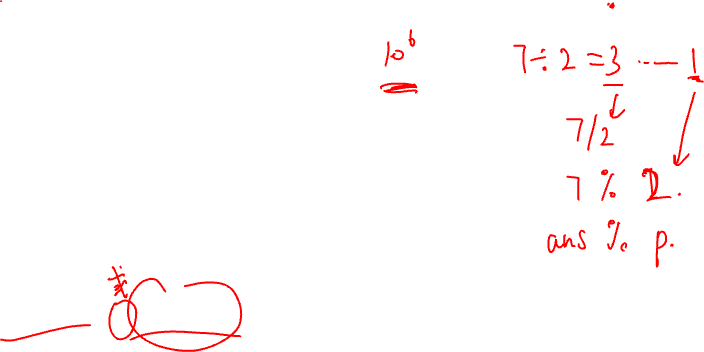 10^6
7÷2=3 ····· 1
7/2
7 % 2.
ans % p.